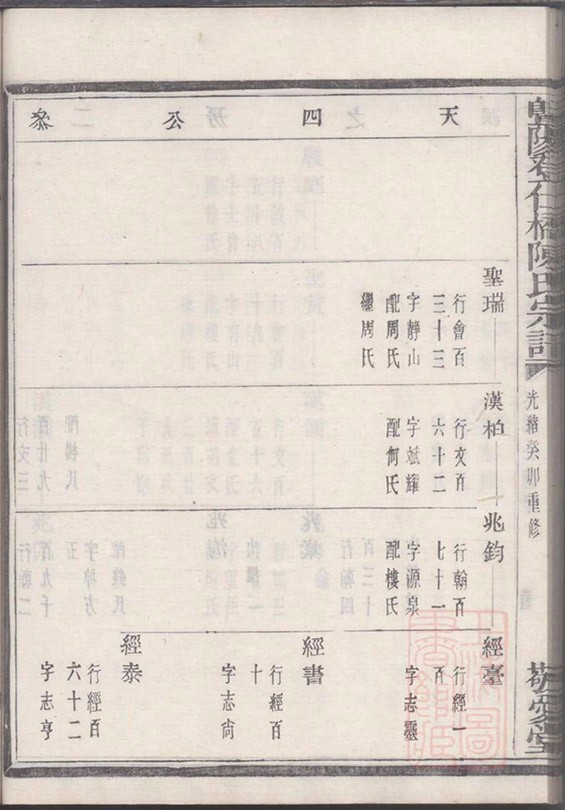 天四公參
聖瑞
行會百
三十三
字靜山
配周氏
繼周氏
漢柏
行文百
六十二
字斌耀
配何氏
兆鈞
行翰百
七十一
字源泉
配樓氏
經臺
行經一
百
字志靈
經書
行經百
十
字志尙
經泰
行經百
六十二
字志亨
暨陽
仁橋陳氏宗譜
光緒癸卯重修
堂